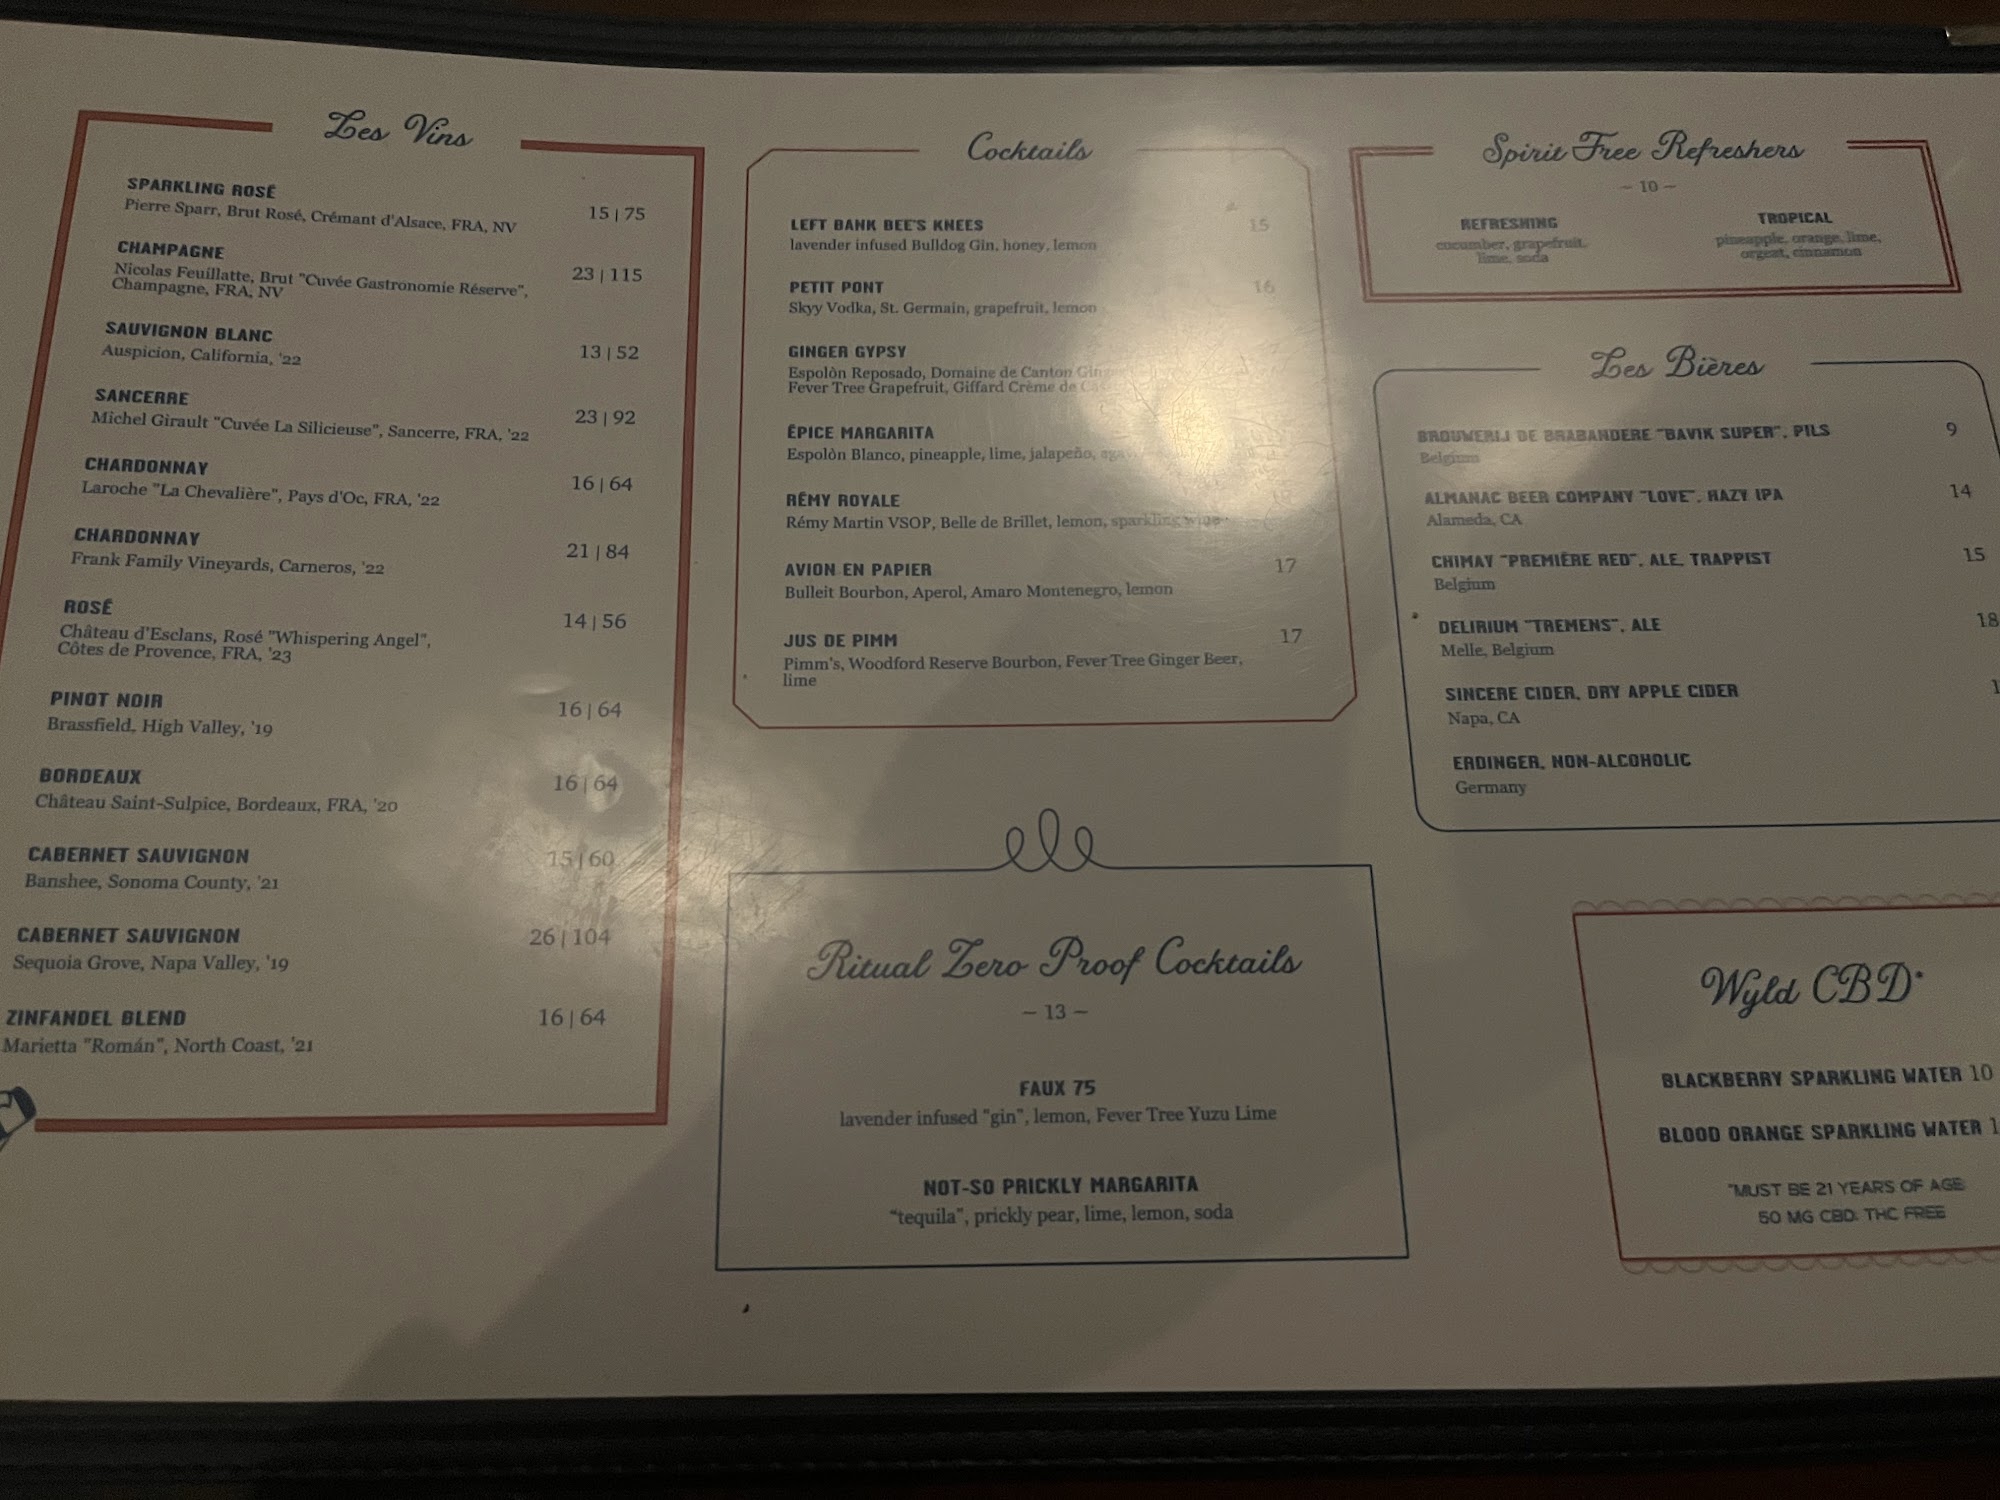 Les Vins
SPARKLING ROSÉ
Pierre Sparr, Brut Rosé, Crémant d'Alsace, FRA, NV
15 | 75
CHAMPAGNE
Nicolas Feuillatte, Brut "Cuvée Gastronomie Réserve",
Champagne, FRA, NV
23 | 115
SAUVIGNON BLANC
Auspicion, California, '22
13 | 52
SANCERRE
Michel Girault "Cuvée La Silicieuse", Sancerre, FRA, '22
23 | 92
CHARDONNAY
Laroche "La Chevalière", Pays d'Oc, FRA, '22
16 | 64
CHARDONNAY
Frank Family Vineyards, Carneros, '22
21 | 84
ROSÉ
Château d'Esclans, Rosé "Whispering Angel",
Côtes de Provence, FRA, '23
14 | 56
PINOT NOIR
Brassfield, High Valley, '19
16 | 64
BORDEAUX
Château Saint-Sulpice, Bordeaux, FRA, '20
16 | 64
CABERNET SAUVIGNON
Banshee, Sonoma County, '21
15 | 60
CABERNET SAUVIGNON
Sequoia Grove, Napa Valley, '19
26 | 104
ZINFANDEL BLEND
Marietta "Román", North Coast, '21
16 | 64
Cocktails
LEFT BANK BEE'S KNEES 15
lavender infused Bulldog Gin, honey, lemon
PETIT PONT 16
Skyy Vodka, St. Germain, grapefruit, lemon
GINGER GYPSY
Espolòn Reposado, Domaine de Canton
Fever Tree Grapefruit, Giffard Crème de
ÉPICE MARGARITA
Espolòn Blanco, pineapple, lime, jalapeño,
RÉMY ROYALE
Rémy Martin VSOP, Belle de Brillet, lemon, sparkling wine
AVION EN PAPIER 17
Bulleit Bourbon, Aperol, Amaro Montenegro, lemon
JUS DE PIMM 17
Pimm's, Woodford Reserve Bourbon, Fever Tree Ginger Beer,
lime
Ritual Zero Proof Cocktails
– 13 –
FAUX 75
lavender infused "gin", lemon, Fever Tree Yuzu Lime
NOT-SO PRICKLY MARGARITA
"tequila", prickly pear, lime, lemon, soda
Spirit Free Refreshers
– 10 –
REFRESHING
cucumber, grapefruit,
lime, soda
TROPICAL
pineapple, orange, lime,
orgeat, cinnamon
Les Bières
BROUWERIJ DE BRABANDERE "BAVIK SUPER", PILS 9
Belgium
ALMANAC BEER COMPANY "LOVE", HAZY IPA 14
Alameda, CA
CHIMAY "PREMIÈRE RED", ALE, TRAPPIST 15
Belgium
DELIRIUM "TREMENS", ALE 18
Melle, Belgium
SINCERE CIDER, DRY APPLE CIDER
Napa, CA
ERDINGER, NON-ALCOHOLIC
Germany
Wyld CBD*
BLACKBERRY SPARKLING WATER 10
BLOOD ORANGE SPARKLING WATER
*MUST BE 21 YEARS OF AGE
50 MG CBD. THC FREE